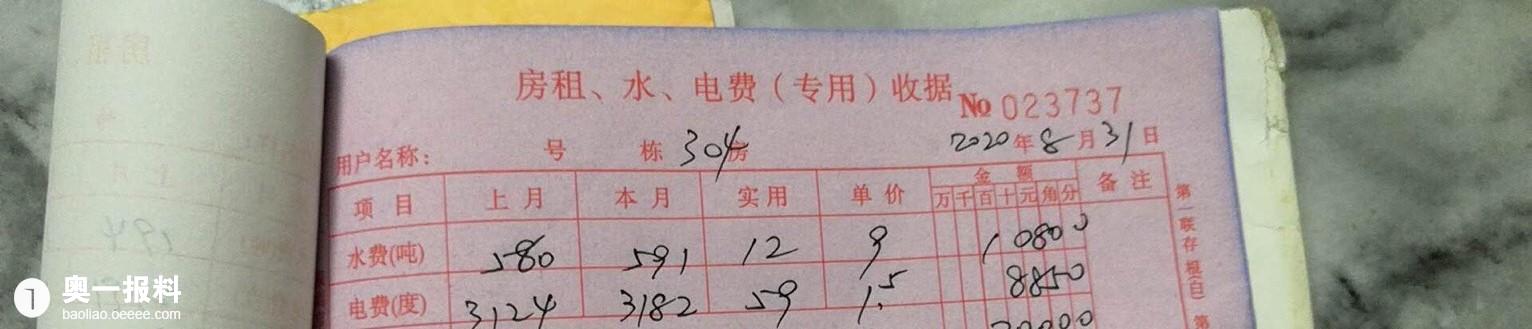 房租、水、电费（专用）收据
No 023737
用户名称： 号 栋 304房 2020年8月31日
项目 上月 本月 实用 单价 金额 备注
万千百十元角分
水费(吨) 580 591 12 9 10800
电费(度) 3124 3182 59 1.5 8850
第一联存根(白) 第
奥一报料
baoliao.oeeee.com